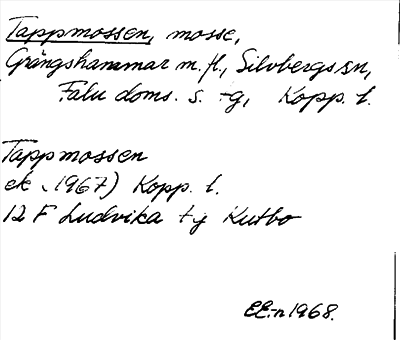 Tappmossen, mosse,
Grängshammar m.fl., Silvbergs sn,
Falu doms. s. -g, Kopp. l.
Tappmossen
ek (1967) Kopp. l.
12 F Ludvika
EE:n 1968.